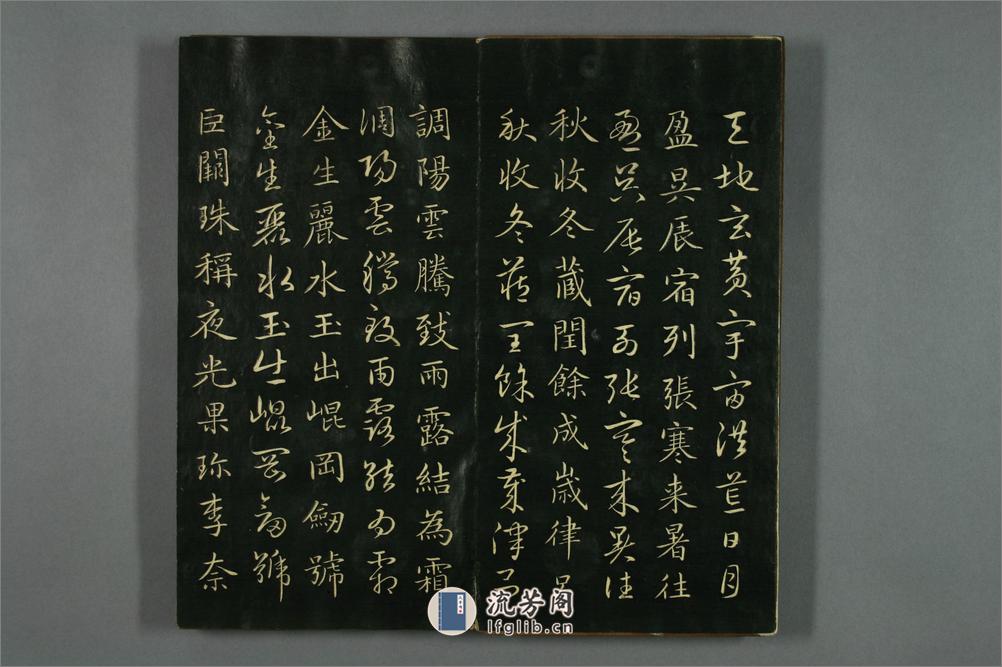 天地玄黃宇宙洪荒日月
盈昃辰宿列張寒来暑往
盈昃辰宿列張寒来暑往
秋收冬藏閏餘成歲律呂
秋收冬藏閏餘成歲律呂
調陽雲騰致雨露結為霜
調陽雲騰致雨露結為霜
金生麗水玉出崐岡劒號
金生麗水玉出崐岡劒號
巨闕珠稱夜光果珎李奈
流芳阁
lfglib.cn